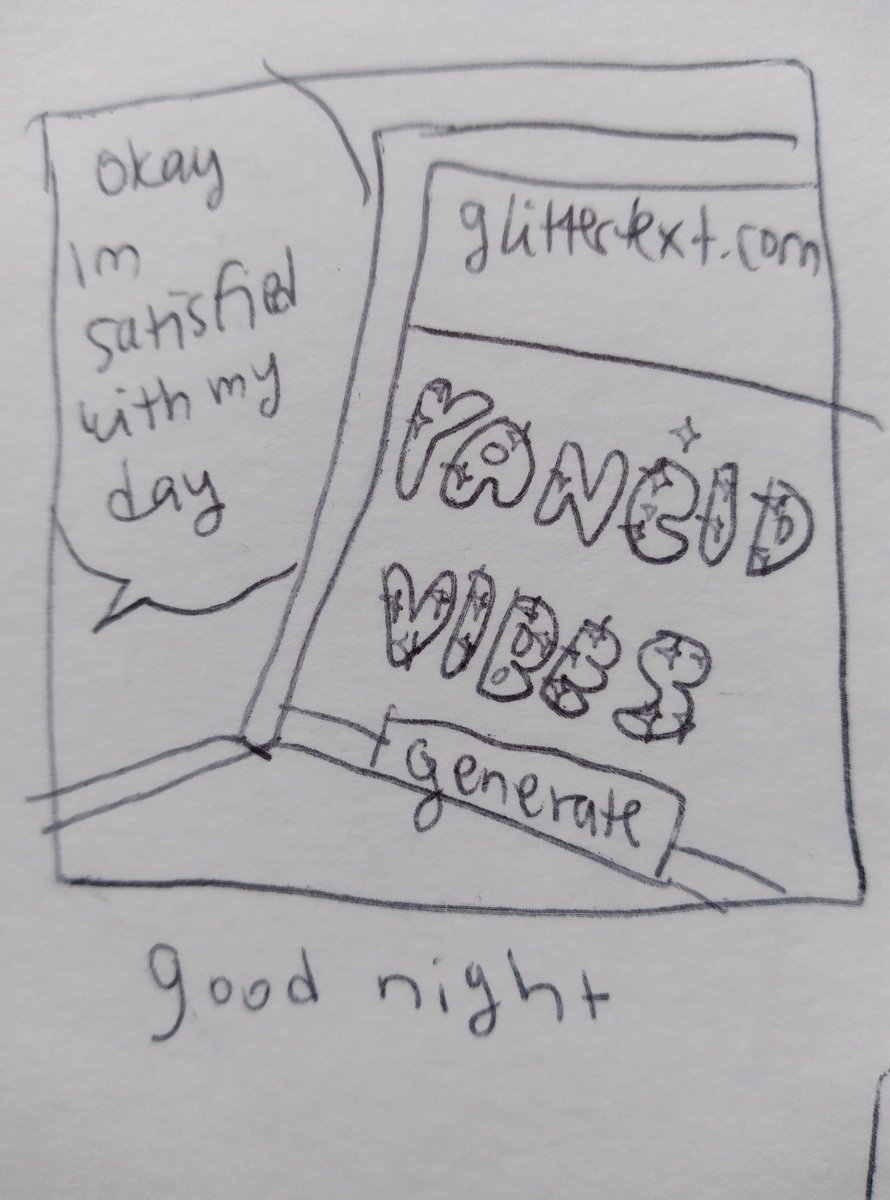 okay
im
satisfied
with my
day
glittertext.com
VIBES
generate
good night